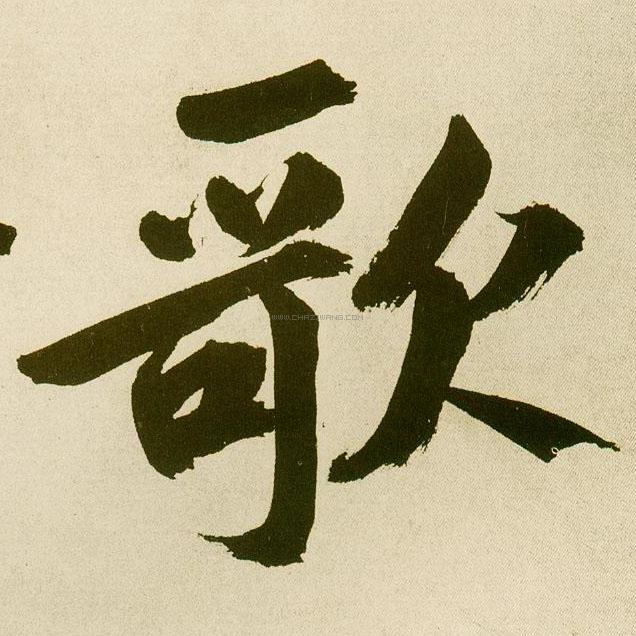 歌
WWW.CHAZIWANG.COM